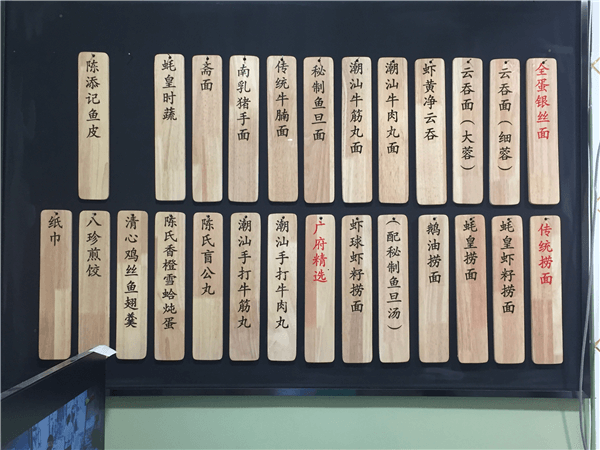 全蛋银丝面
云吞面（细蓉）
云吞面（大蓉）
虾黄净云吞
潮汕牛肉丸面
潮汕牛筋丸面
秘制鱼旦面
传统牛腩面
南乳猪手面
斋面
蚝皇时蔬
陈添记鱼皮
传统捞面
蚝皇虾籽捞面
蚝皇捞面
鹅油捞面
（配秘制鱼旦汤）
虾球虾籽捞面
广府精选
潮汕手打牛肉丸
潮汕手打牛筋丸
陈氏盲公丸
陈氏香橙雪蛤炖蛋
清心鸡丝鱼翅羹
八珍煎饺
纸巾